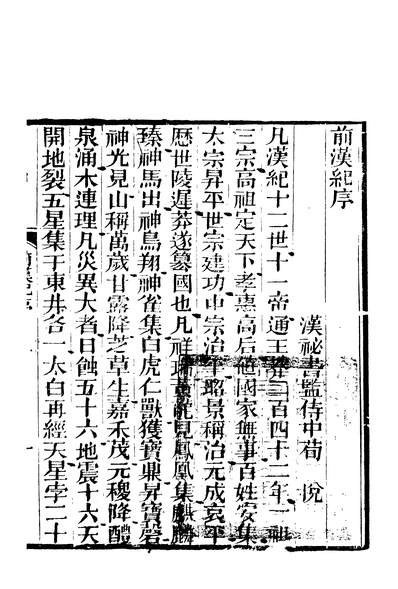 前漢紀序
漢祕書監侍中荀悅
凡漢紀十二世十一帝通王莽二百四十二年一祖
三宗高祖定天下孝惠高后值國家無事百姓安集
太宗昇平世宗建功中宗治平昭景稱治元成哀平
歷世陵遲莽遂篡國也凡祥瑞黃龍見鳳凰集麒麟
臻神馬出神鳥翔神雀集白虎仁獸獲寶鼎昇寶磬
神光見山稱萬歲甘露降芝草生嘉禾茂元稷降醴
泉涌木連理凡災異大者日蝕五十六地震十六天
開地裂五星集于東井各一太白再經天星孛二十